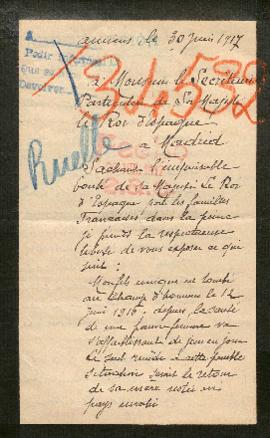 Amiens le 30 Juin 1917
Pedir
que se
Devolver
à Monsieur le Secrétaire
Particulier de Sa Majesté
Le Roi d'Espagne
à Madrid
Ruelle
Sachant l'inépuisable
bonté de sa Majesté Le Roi
d'Espagne pour les familles
Françaises dans la peine
je prends la respectueuse
liberté de vous exposer ce qui
suit :
Mon fils unique est tombé
au champ d'honneur le 12
Juin 1916, depuis, la santé
de ma pauvre femme va
s'affaiblissant de jour en jour
Le seul remède à cette pénible
situation serait le retour
de sa mère restée en
pays envahi